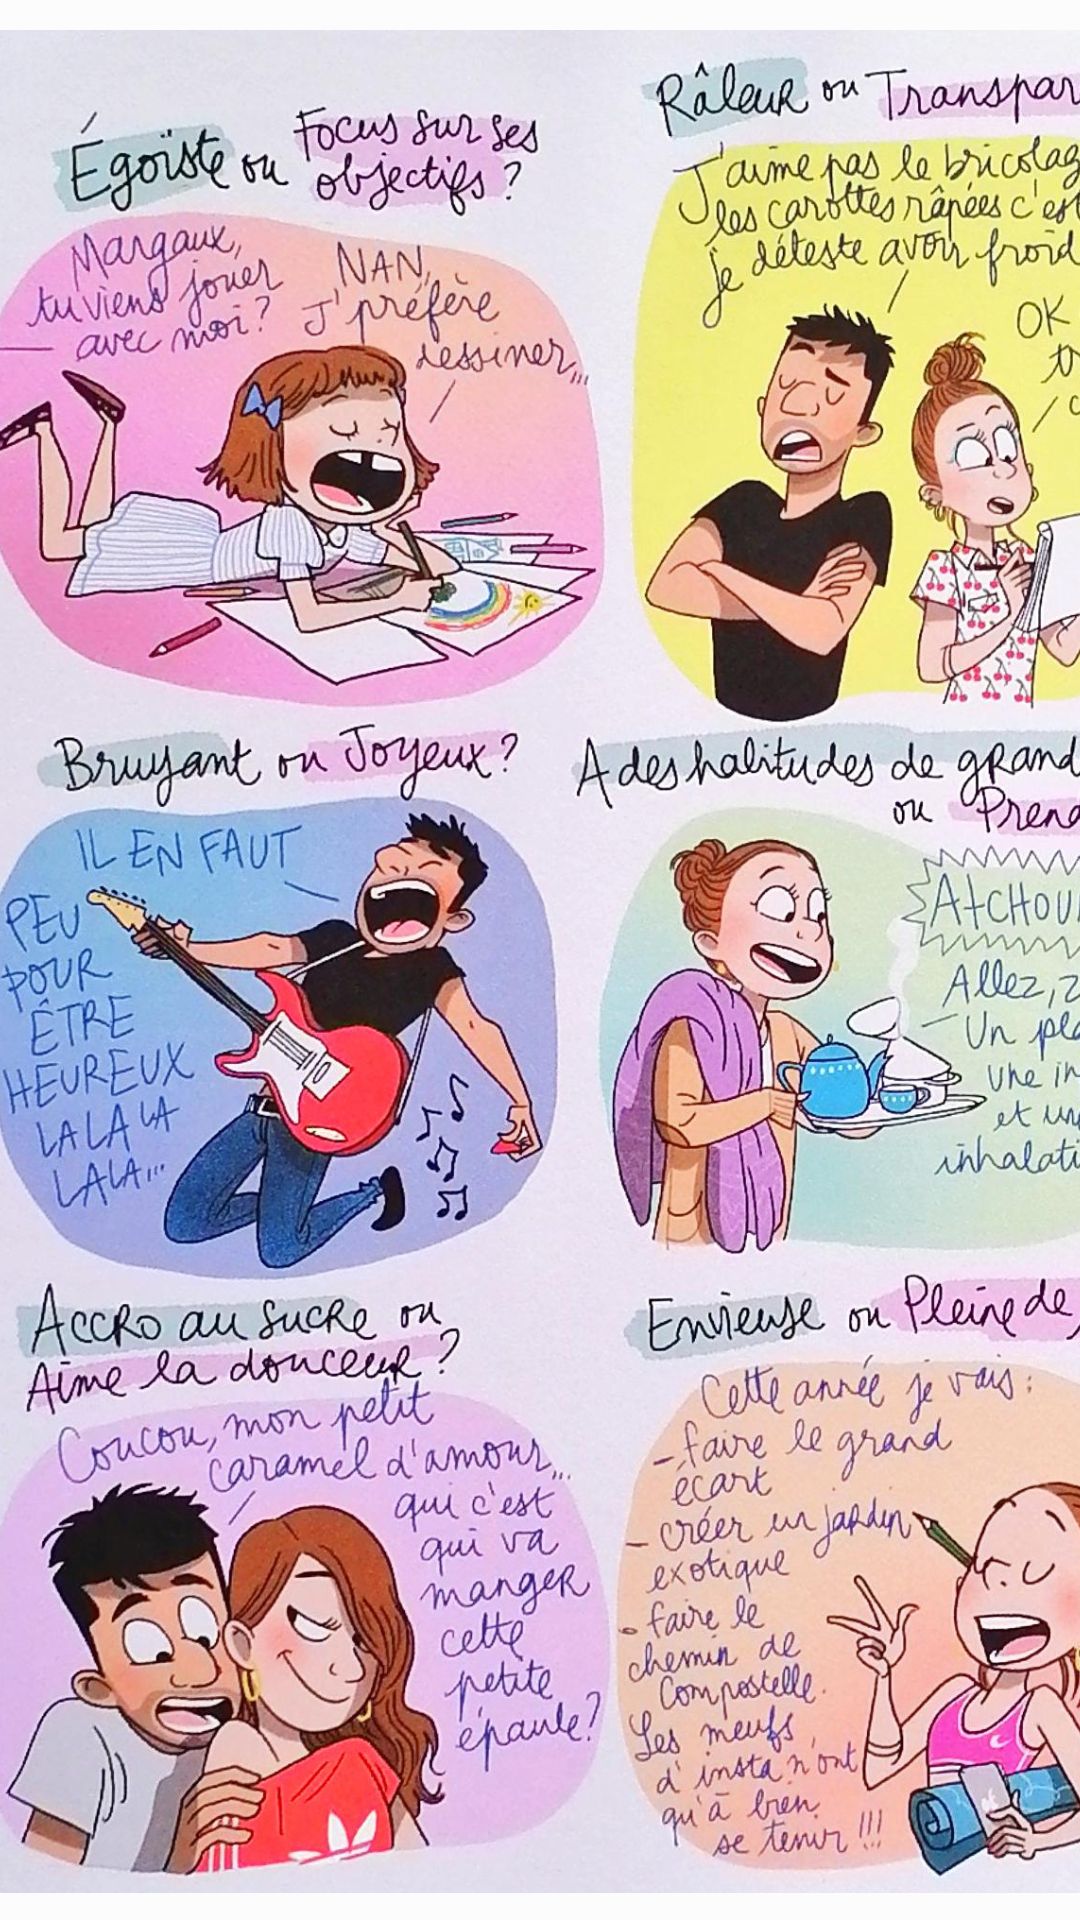 Égoïste ou Focus sur ses
objectifs ?
Margaux,
tu viens jouer
avec moi ?
NAN,
J'préfère
dessiner...
Râleur ou
J'aime pas le
les carottes râpées c'est
je déteste avoir froid
OK
Bruyant ou Joyeux ?
IL EN FAUT
PEU
POUR
ÊTRE
HEUREUX
LA LA LA
LALA...
A des habitudes de
ou
Allez,
Un
une
et
Accro au sucre ou
Aime la douceur ?
Coucou, mon petit
caramel d'amour...
qui c'est
qui va
manger
cette
petite
épaule ?
Envieuse ou Pleine de
Cette année je vais :
- faire le grand
écart
- créer un jardin
exotique
- faire le
chemin de
Compostelle.
Les meufs
d'insta n'ont
qu'à bien
se tenir !!!